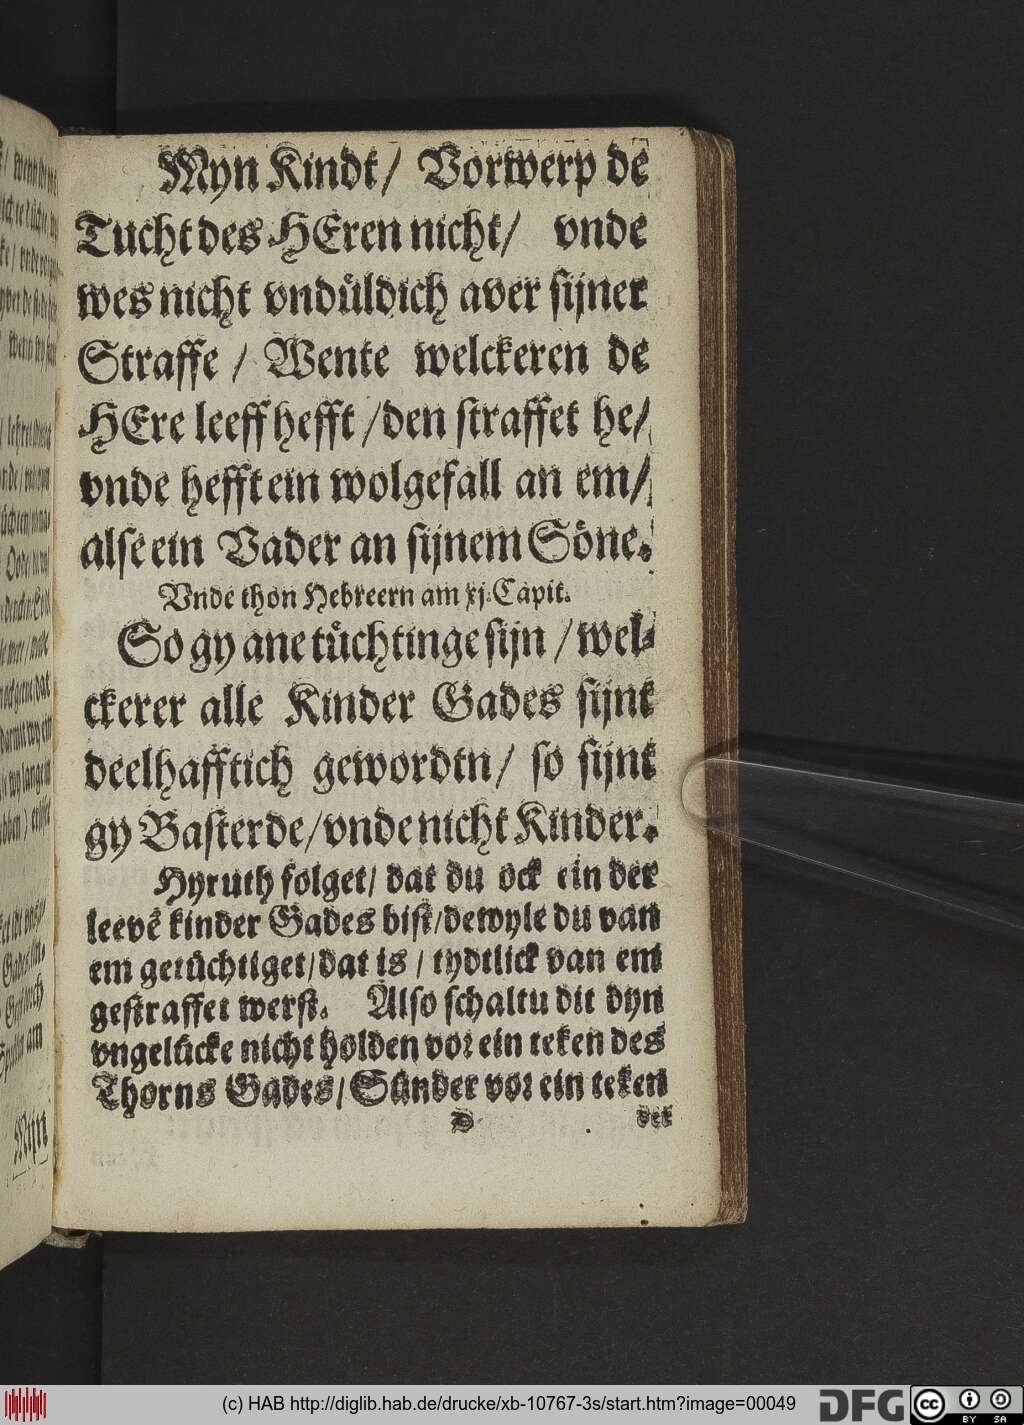 Myn Kindt / Vorwerp de
Tucht des HEren nicht / vnde
wes nicht vndüldich aver sijner
Straffe / Wente welckeren de
HEre leeff hefft / den straffet he /
vnde hefft ein wolgefall an em /
alse ein Vader an sijnem Söne.
Vnde thon Hebreern am xj. Capit.
So gy ane tüchtinge sijn / wel-
ckerer alle Kinder Gades sijnt
deelhafftich gewordtn / so sijnt
gy Basterde / vnde nicht Kinder.
Hyruth folget / dat du ock ein der
leevē kinder Gades bist / dewyle du van
em getüchtiget / dat is / tydtlick van em
gestraffet werst. Also schaltu dit dyn
vngelücke nicht holden vor ein teken des
Thorns Gades / Sünder vor ein teken
D der
Myn
(c) HAB http://diglib.hab.de/drucke/xb-10767-3s/start.htm?image=00049
DFG cc BY SA